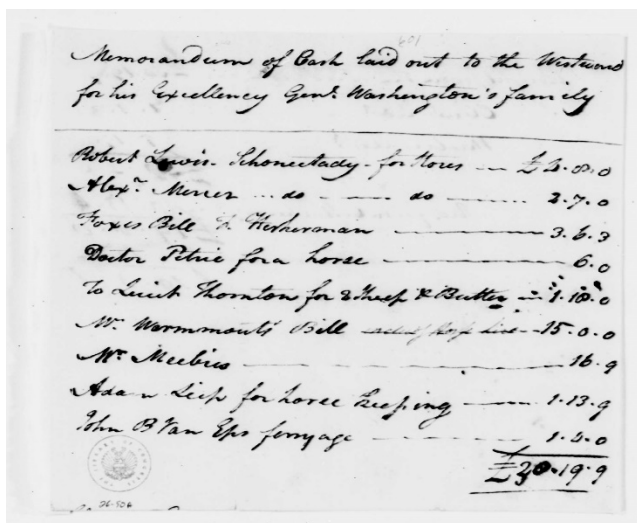 Memorandum of Cash laid out to the Westward
for his Excellency Genl. Washington's family
Robert Lewis. Schonectady - for Stores — £4.8.0
Alexr. Mercer ... do — do — 2.7.0
Foxes Bill & Fisherman — 3.6.3
Doctor Petrie for a horse — 6.0
To Lieut Thornton for 2 Sheep & Butter — 1.18.0
Mr. Warmmouts Bill — 15.0.0
Mr Meebius — 16.9
Adam Leip for horse Keeping — 1.13.9
John B Van Eps ferryage — 1.4.0
£30.19.9
26-506